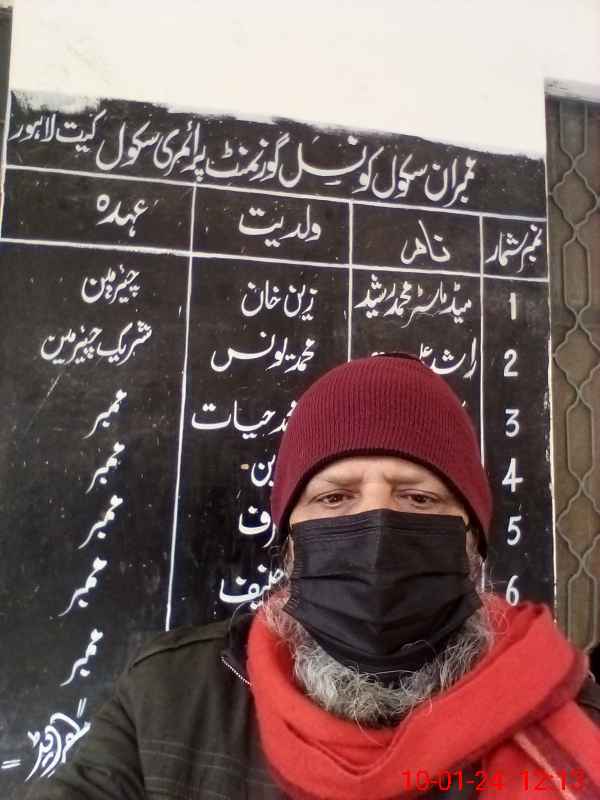 ممبران سکول کونسل گورنمنٹ پرائمری سکول کیت لاہور
نمبر شمار نام ولدیت عہدہ
1 ہیڈ ماسٹر محمد رشید زین خان چیئرمین
2 راشد محمد یونس شریک چیئرمین
3 حیات ممبر
4 ممبر
5 ممبر
6 حنیف ممبر
ممبر
10-01-24 12:13